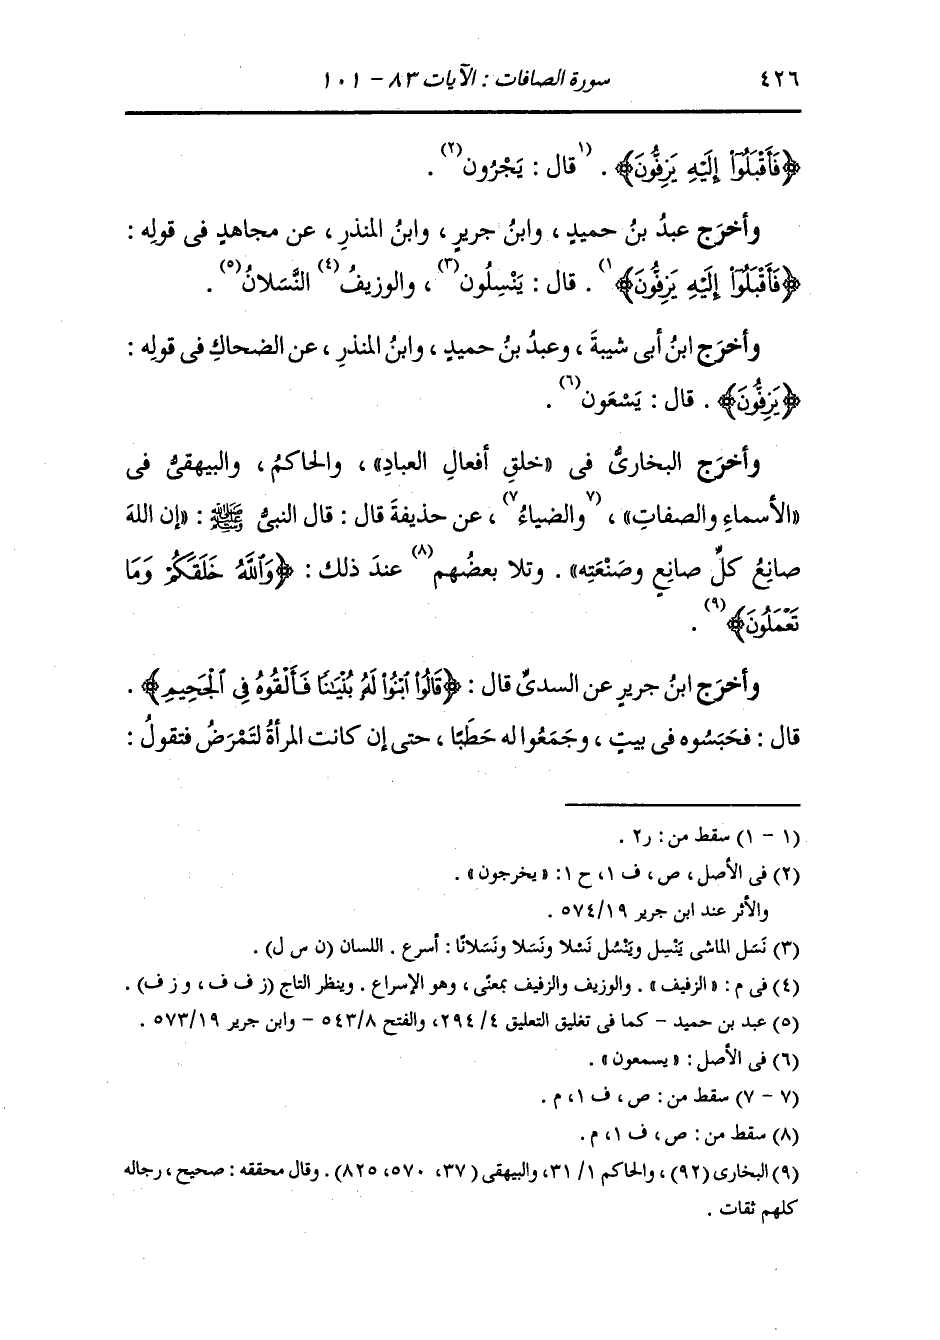 ٤٢٦ سورة الصافات : الآيات ٨٣ - ١٠١
﴿فَأَقْبَلُوٓا۟ إِلَيْهِ يَزِفُّونَ﴾ . (١قال : يَجْرُون(٢) .
وأخرَج عبدُ بنُ حميدٍ ، وابنُ جريرٍ ، وابنُ المنذرِ ، عن مجاهدٍ فى قولِه :
﴿فَأَقْبَلُوٓا۟ إِلَيْهِ يَزِفُّونَ﴾١) . قال : يَنْسِلُون(٣) ، والوزيفُ(٤) النَّسَلانُ(٥) .
وأخرَج ابنُ أبى شيبةَ ، وعبدُ بنُ حميدٍ ، وابنُ المنذرِ ، عن الضحاكِ فى قولِه :
﴿يَزِفُّونَ﴾ . قال : يَسْعَون(٦) .
وأخرَج البخارىُّ فى «خلقِ أفعالِ العبادِ» ، والحاكمُ ، والبيهقىُّ فى
«الأسماءِ والصفاتِ» ، (٧والضياءُ٧) ، عن حذيفةَ قال : قال النبىُّ ﷺ : «إن اللهَ
صانِعُ كلِّ صانِعٍ وصَنْعَتِه» . وتلا بعضُهم(٨) عندَ ذلك : ﴿وَٱللَّهُ خَلَقَكُمْ وَمَا
تَعْمَلُونَ﴾(٩) .
وأخرَج ابنُ جريرٍ عن السدىِّ قال : ﴿قَالُوا۟ ٱبْنُوا۟ لَهُۥ بُنْيَـٰنًا فَأَلْقُوهُ فِى ٱلْجَحِيمِ﴾ .
قال : فحَبَسُوه فى بيتٍ ، وجَمَعُوا له حَطَبًا ، حتى إن كانت المرأةُ لتَمْرَضُ فتقولُ :
(١ - ١) سقط من : ر٢ .
(٢) فى الأصل ، ص ، ف ١، ح ١: « يخرجون » .
والأثر عند ابن جرير ٥٧٤/١٩ .
(٣) نَسَل الماشى يَنْسِل ويَنْسُل نَسْلا ونَسَلا ونَسَلانًا : أسرع . اللسان (ن س ل) .
(٤) فى م : « الزفيف » . والوزيف والزفيف بمعنًى ، وهو الإسراع . وينظر التاج (ز ف ف ، و ز ف) .
(٥) عبد بن حميد - كما فى تغليق التعليق ٤/ ٢٩٤، والفتح ٥٤٣/٨ - وابن جرير ٥٧٣/١٩ .
(٦) فى الأصل : « يسمعون » .
(٧ - ٧) سقط من : ص ، ف ١، م .
(٨) سقط من : ص ، ف ١، م .
(٩) البخارى (٩٢) ، والحاكم ١/ ٣١، والبيهقى (٣٧، ٥٧٠، ٨٢٥) . وقال محققه : صحيح ، رجاله
كلهم ثقات .